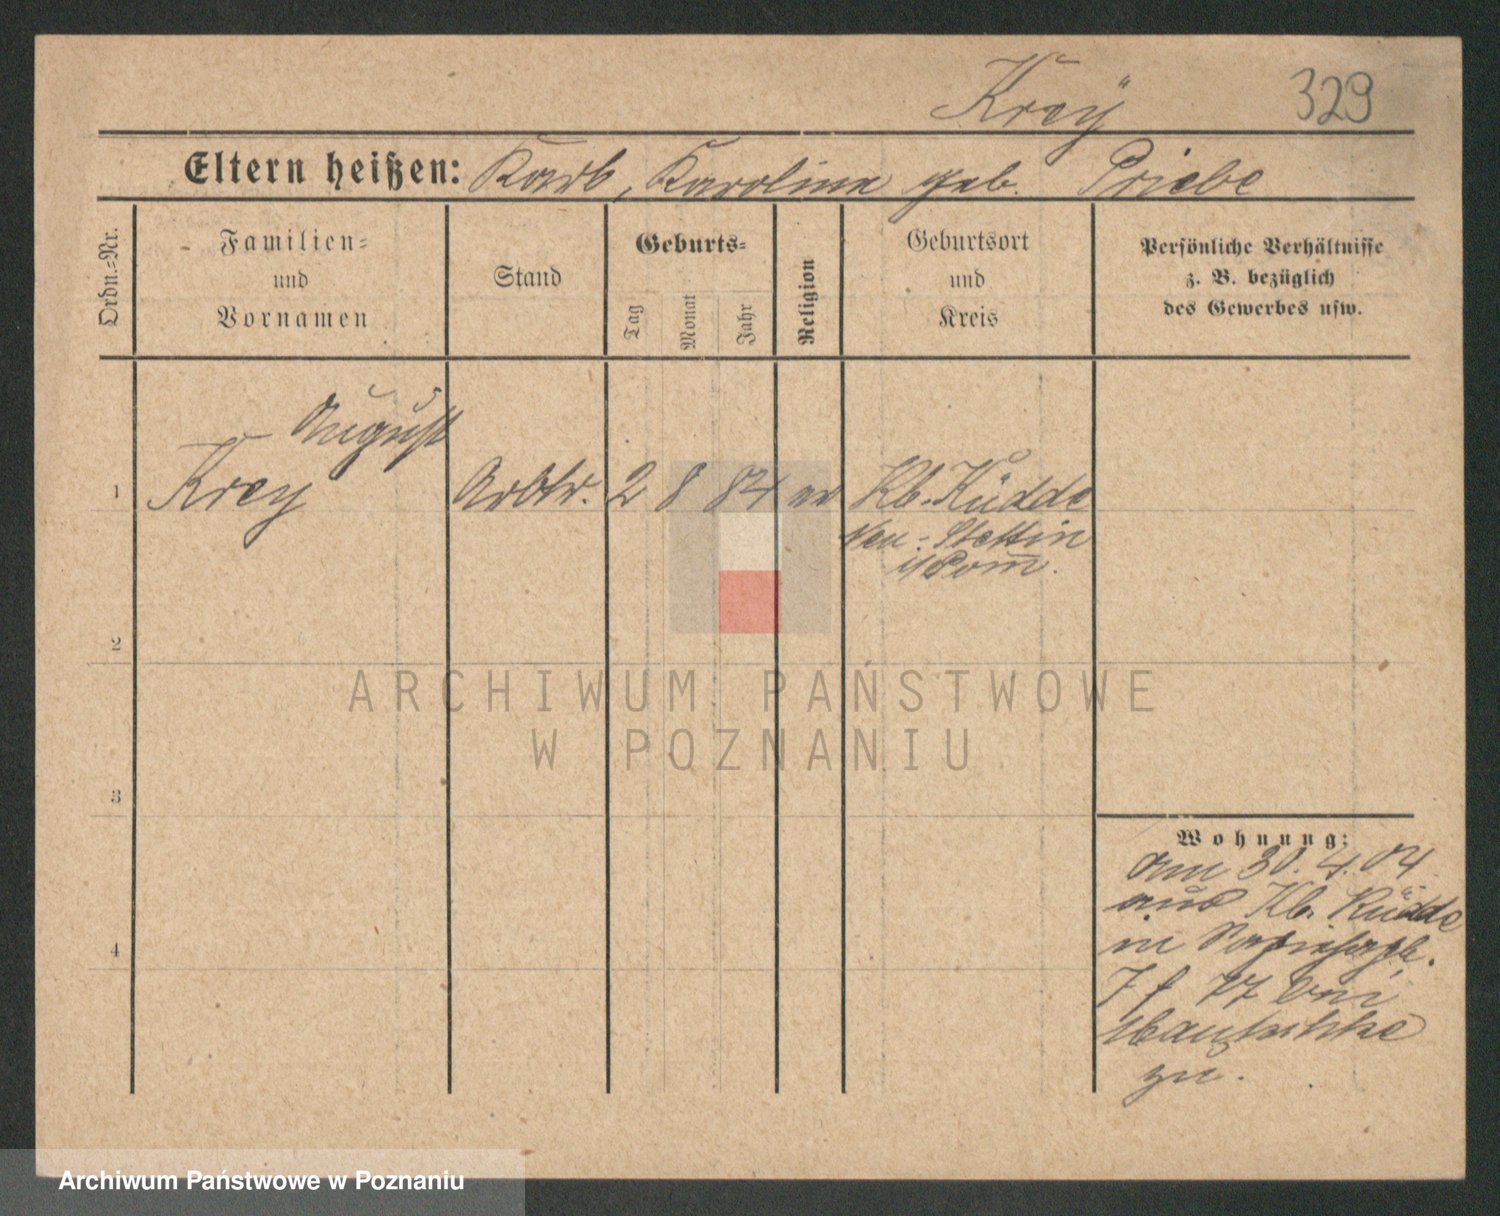 Kreÿ 329
Eltern heißen: Karl, Karoline geb. Priebe
Ordn.-Nr.
Familien-
und
Vornamen
Stand
Geburts-
Tag
Monat
Jahr
Religion
Geburtsort
und
Kreis
Persönliche Verhältnisse
z. B. bezüglich
des Gewerbes usw.
August
1 Krey Arbtr. 2 8 84 ev Kl. Küdde
Neu-Stettin
i/Pom.
2
3
4
Wohnung:
am 30.4.04
aus Kl. Küdde
in
7 f 77 bei
zu.
ARCHIWUM PAŃSTWOWE
W POZNANIU
Archiwum Państwowe w Poznaniu